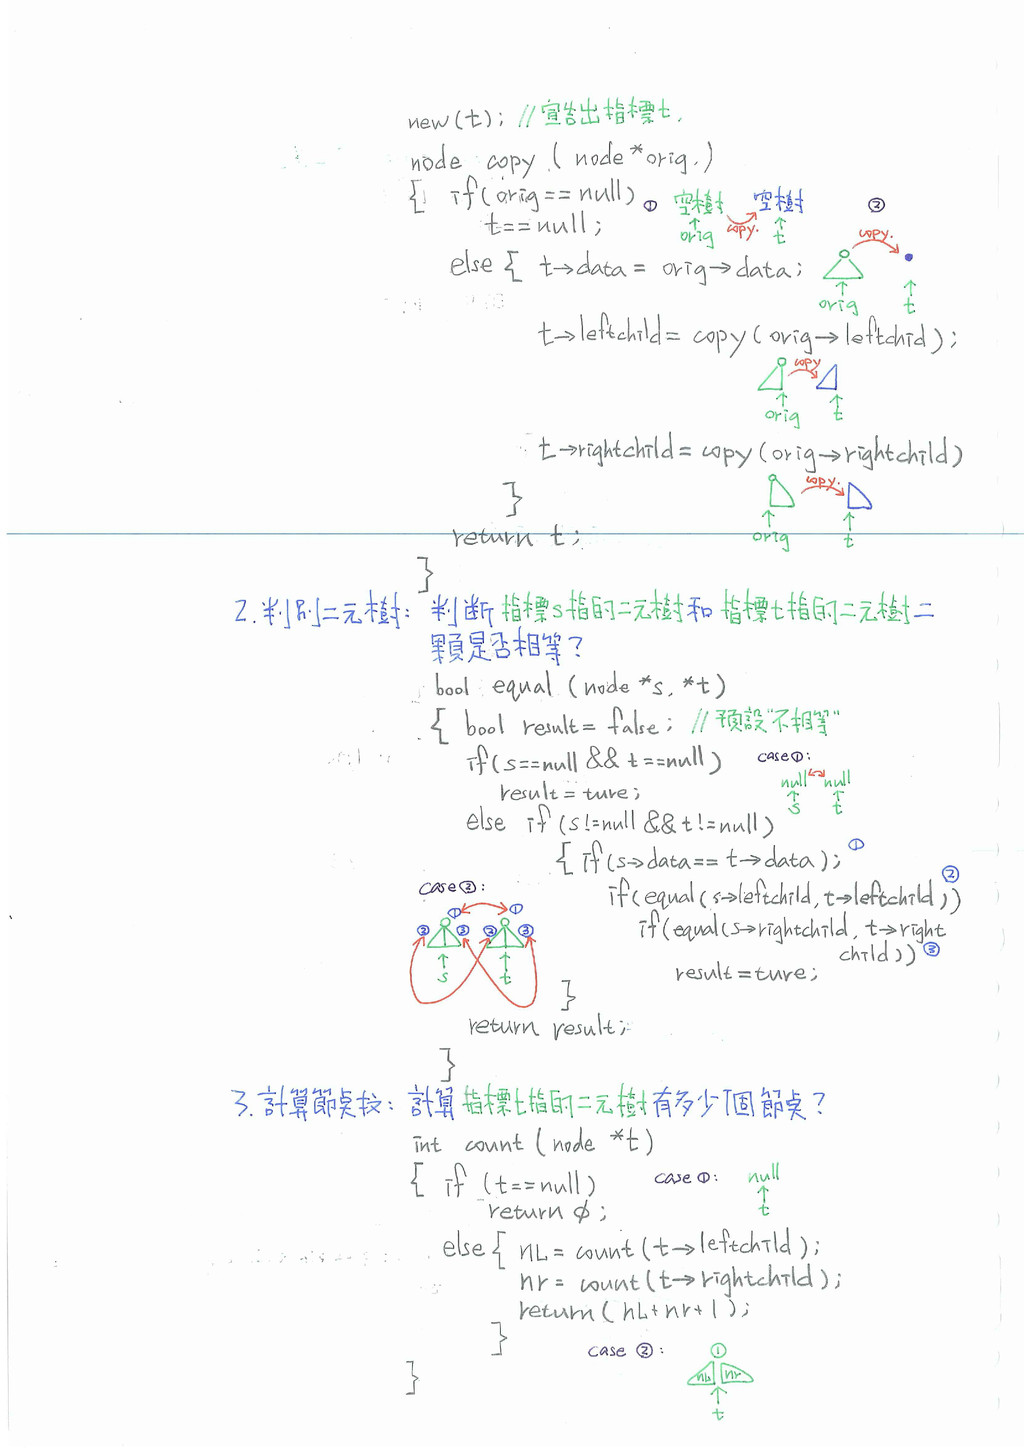 new(t); //宣告出指標t.
node copy (node *orig.)
{ if(orig==null) ① 空樹 空樹 ②
t==null; orig copy. t copy.
else { t→data = orig→data;
orig t
t→leftchild= copy(orig→leftchid);
copy
orig t
t→rightchild= copy(orig→rightchild)
copy.
}
orig t
return t;
}
2.判別二元樹: 判斷指標s指的二元樹和指標t指的二元樹二
顆是否相等?
bool equal (node *s, *t)
{ bool result= false; //預設"不相等"
if(s==null && t==null) case①:
null null
result=ture; s t
else if(s!=null && t!=null)
{ if(s→data== t→data); ①
case②: if(equal(s→leftchild,t→leftchild,)) ②
① ①
② ③ ② ③ if(equal(s→rightchild, t→right
child,)) ③
s t result=ture;
}
return result;
}
3.計算節點校: 計算指標t指的二元樹有多少個節點?
int count (node *t)
{ if (t==null) case①: null
return ϕ; t
else{ nL= count(t→leftchild);
nr= count(t→rightchild);
return(nL+nr+1);
}
case ②: ①
nL nr
}
t